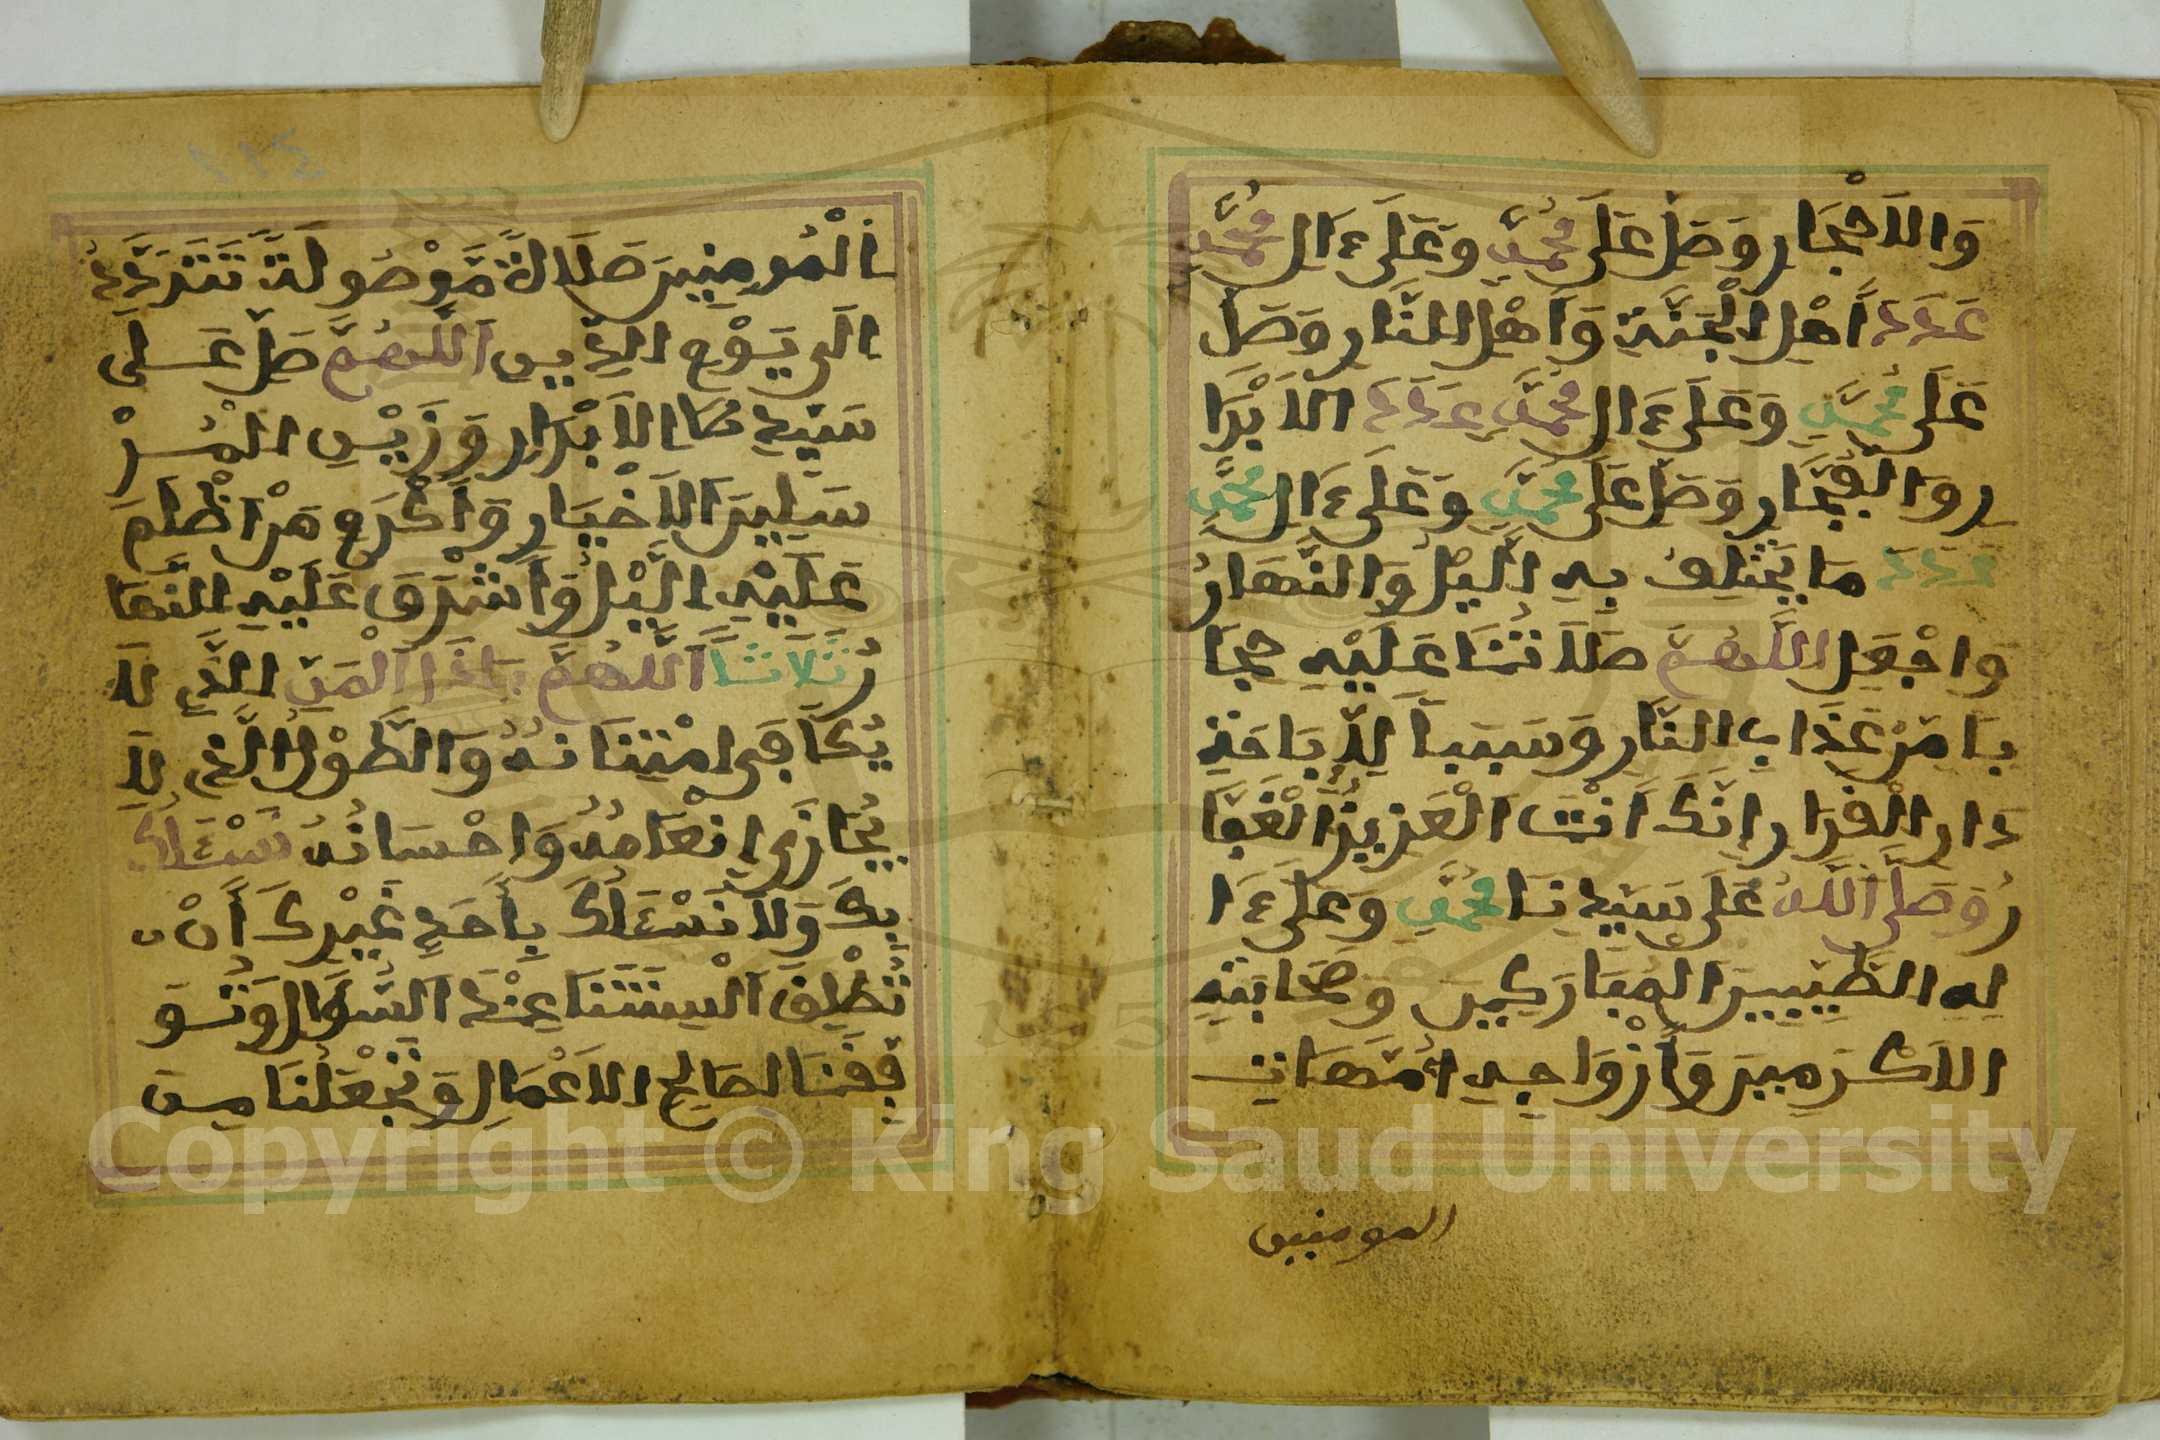 وَالاَحْجَارِ وَصَلِّ عَلَى مُحَمَّدٍ وَعَلَى ءَالِ مُحَمَّدٍ
عَدَدَ أَهْلِ الْجَنَّةِ وَأَهْلِ النَّارِ وَصَلِّ
عَلَى مُحَمَّدٍ وَعَلَى ءَالِ مُحَمَّدٍ عَدَدَ الاَبْرَا
رِ وَالْفُجَّارِ وَصَلِّ عَلَى مُحَمَّدٍ وَعَلَى ءَالِ مُحَمَّدٍ
عَدَدَ مَا يَخْتَلِفُ بِهِ الَّيْلُ وَالنَّهَارُ
وَاجْعَلِ اللَّهُمَّ صَلَاتَنَا عَلَيْهِ حِجَا
بًا مِّنْ عَذَابِ النَّارِ وَسَبَبًا لِّلْإِبَاحَةِ
دَارِ الْقَرَارِ إِنَّكَ أَنْتَ الْعَزِيزُ الْغَفَّا
رُ وَصَلَّى اللَّهُ عَلَى سَيِّدِنَا مُحَمَّدٍ وَعَلَى ءَا
لِهِ الطَّيِّبِينَ الْمُبَارَكِينَ وَصَحَابَتِهِ
الاَكْرَمِينَ وَأَزْوَاجِهِ أُمَّهَاتِ
المومنين
الْمُومِنِينَ صَلَاةً مَّوْصُولَةً تَتَرَدَّدُ
الَى يَوْمِ الدِّينِ اَللَّهُمَّ صَلِّ عَلَى
سَيِّدِنَا الاَبْرَارِ وَزَيْنِ الْمُرْ
سَلِينَ الاَخْيَارِ وَأَكْرَمِ مَنْ اَظْلَمَ
عَلَيْهِ الَّيْلُ وَأَشْرَقَ عَلَيْهِ النَّهَا
رُ ثَلَاثًا اَللَّهُمَّ يَا ذَا الْمَنِّ الَّذِي لَا
يُكَافَى امْتِنَانُهُ وَالطَّوْلِ الَّذِي لَا
يُجَازَى إِنْعَامُهُ وَإِحْسَانُهُ نَسْـَٔلُكَ
بِكَ وَلَا نَسْـَٔلُكَ بِأَحَدٍ غَيْرِكَ أَنْ
تُطْلِقَ أَلْسِنَتَنَا عِنْدَ السُّؤَالِ وَتُوَ
فِّقَنَا لِصَالِحِ الاَعْمَالِ وَتَجْعَلَنَا مِنَ
Copyright © King Saud University